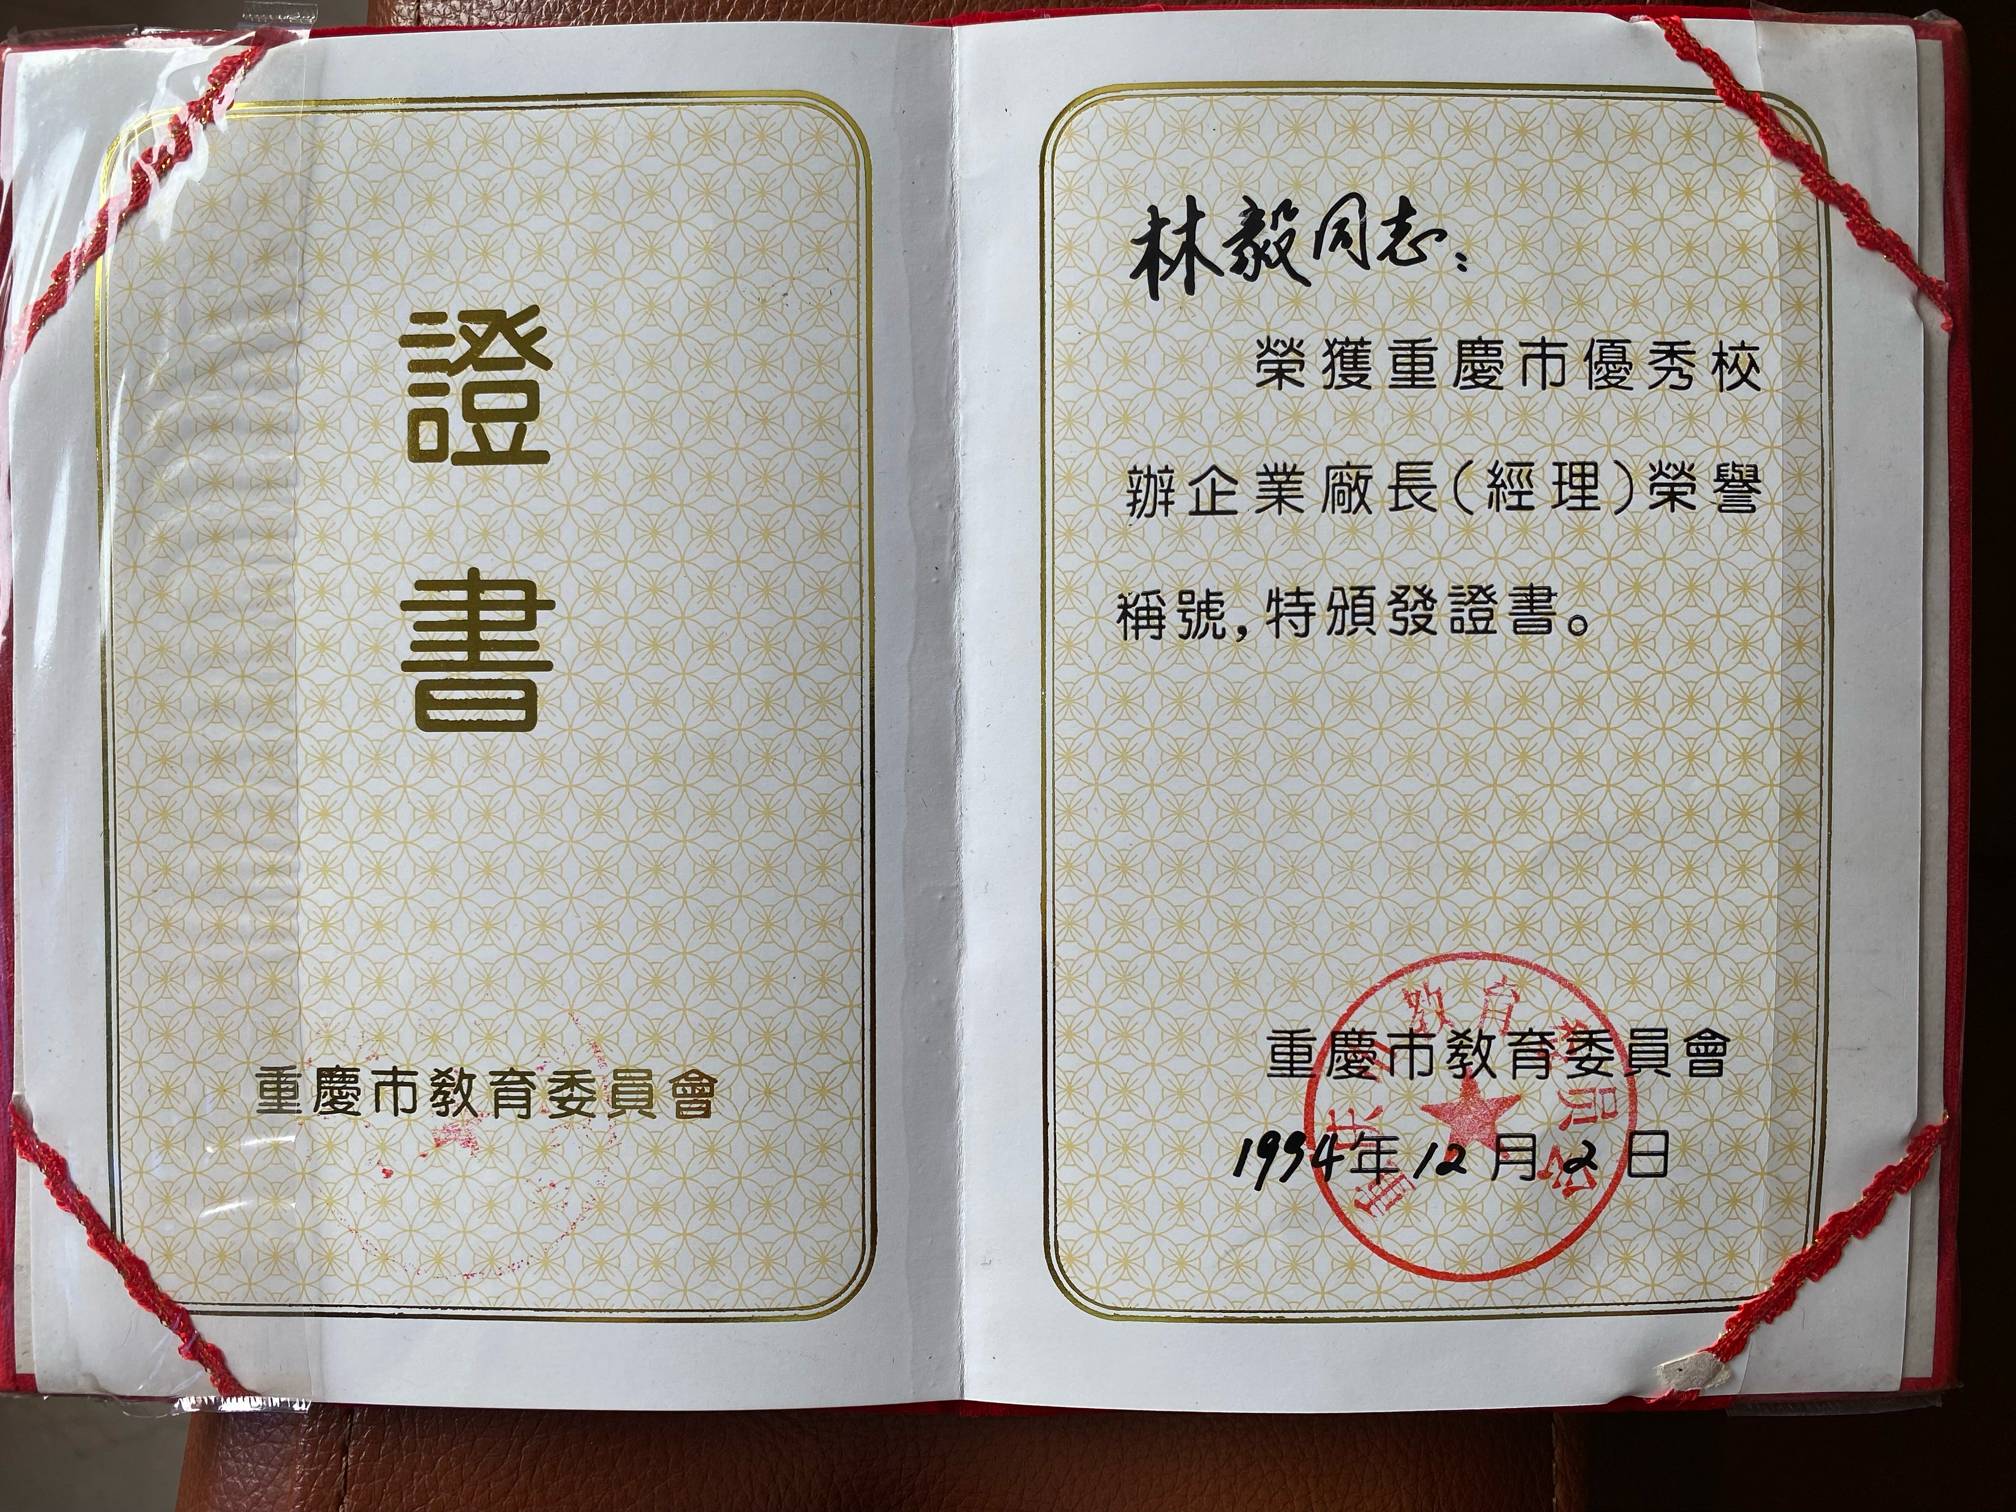 證
書
重慶市教育委員會
林毅同志：
榮獲重慶市優秀校
辦企業廠長(經理)榮譽
稱號,特頒發證書。
重慶市教育委員會
1994年12月2日